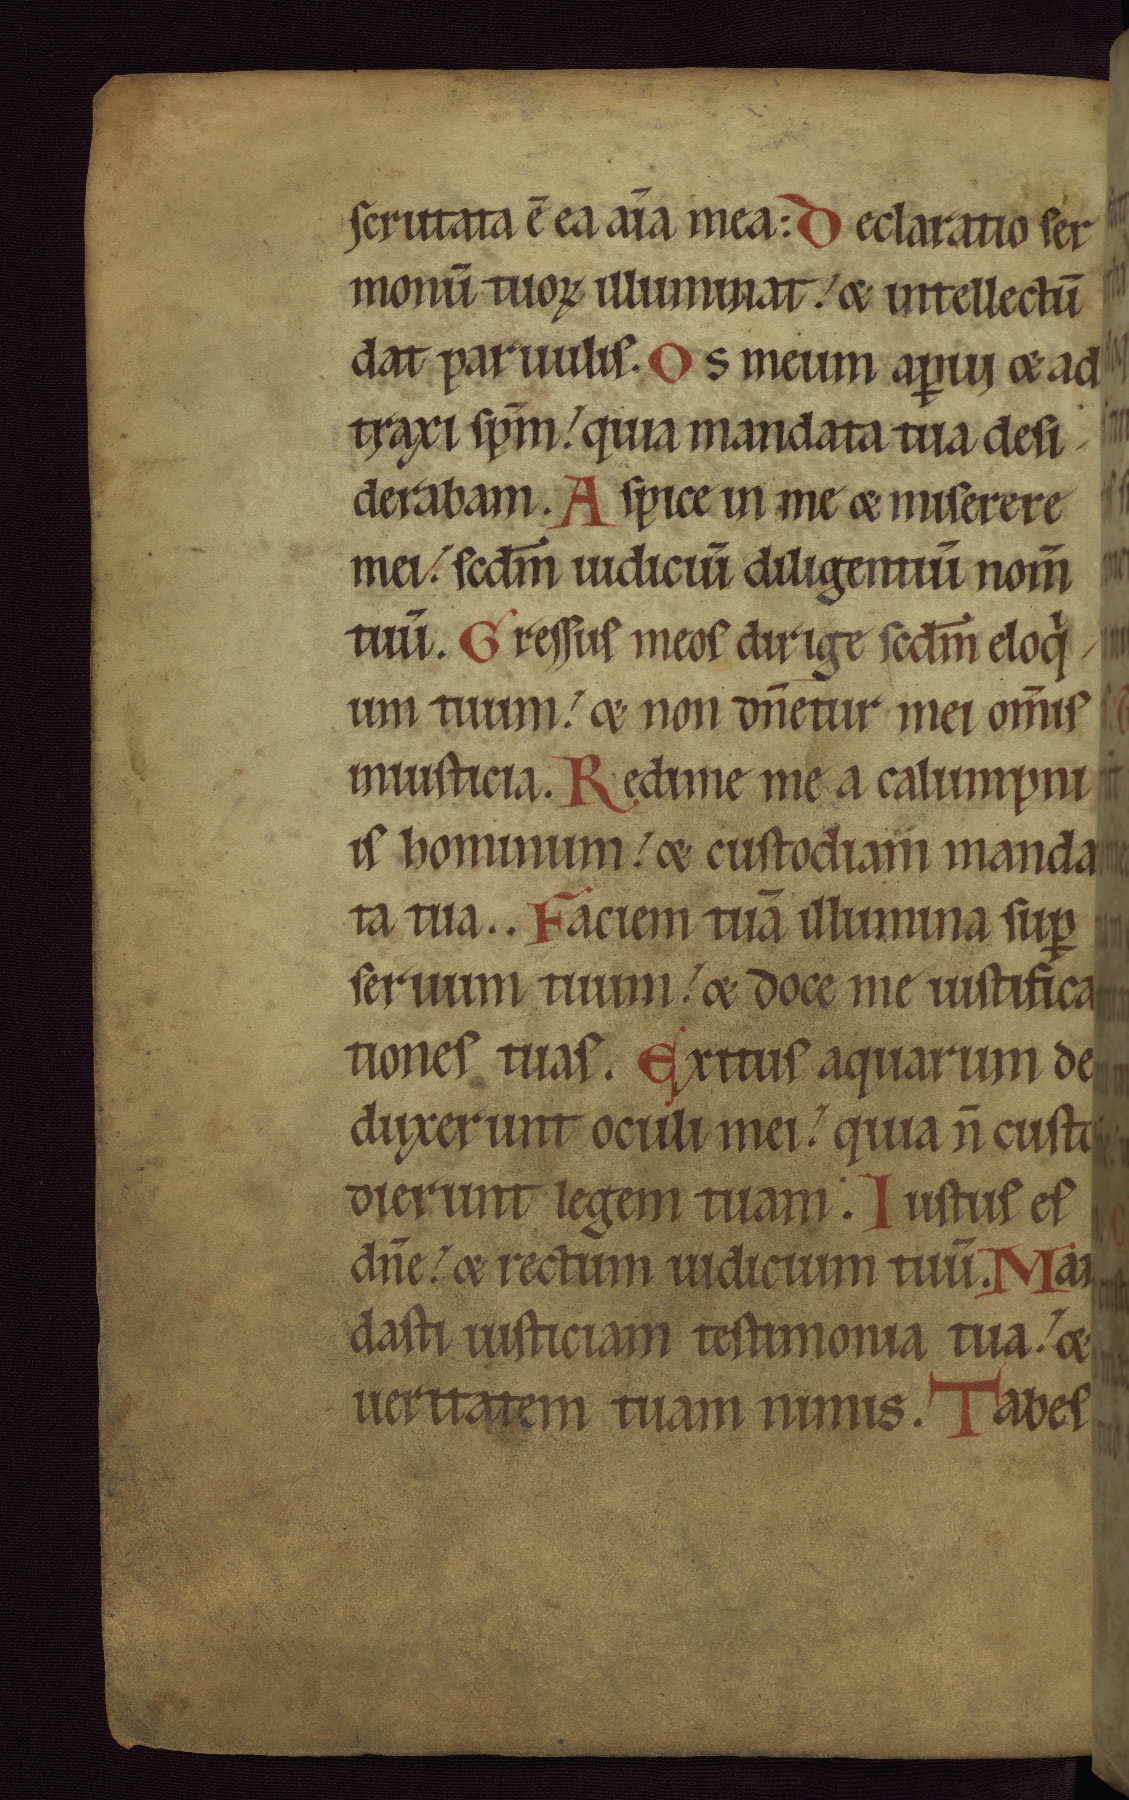 scrutata ē ea aīa mea: Declaratio ser
monū tuoꝝ illuminat! & intellectū
dat paruulis. Os meum aꝑui & ad
traxi spm̄! quia mandata tua desi-
derabam. Aspice in me & miserere
mei! scdm̄ iudiciū diligentiū nom̄
tuū. Gressus meos dirige scdm̄ eloqͥ-
um tuum! & non dn̄etur mei om̄is
iniusticia. Redime me a calumpni
is hominum! & custodiam manda
ta tua.. Faciem tuā illumina suꝑ
seruum tuum! & doce me iustifica
tiones tuas. Exitus aquarum de
duxerunt oculi mei! quia n̄ custo
dierunt legem tuam. Iustus es
dn̄e! & rectum iudicium tuū. Man
dasti iusticiam testimonia tua! &
ueritatem tuam nimis. Tabes